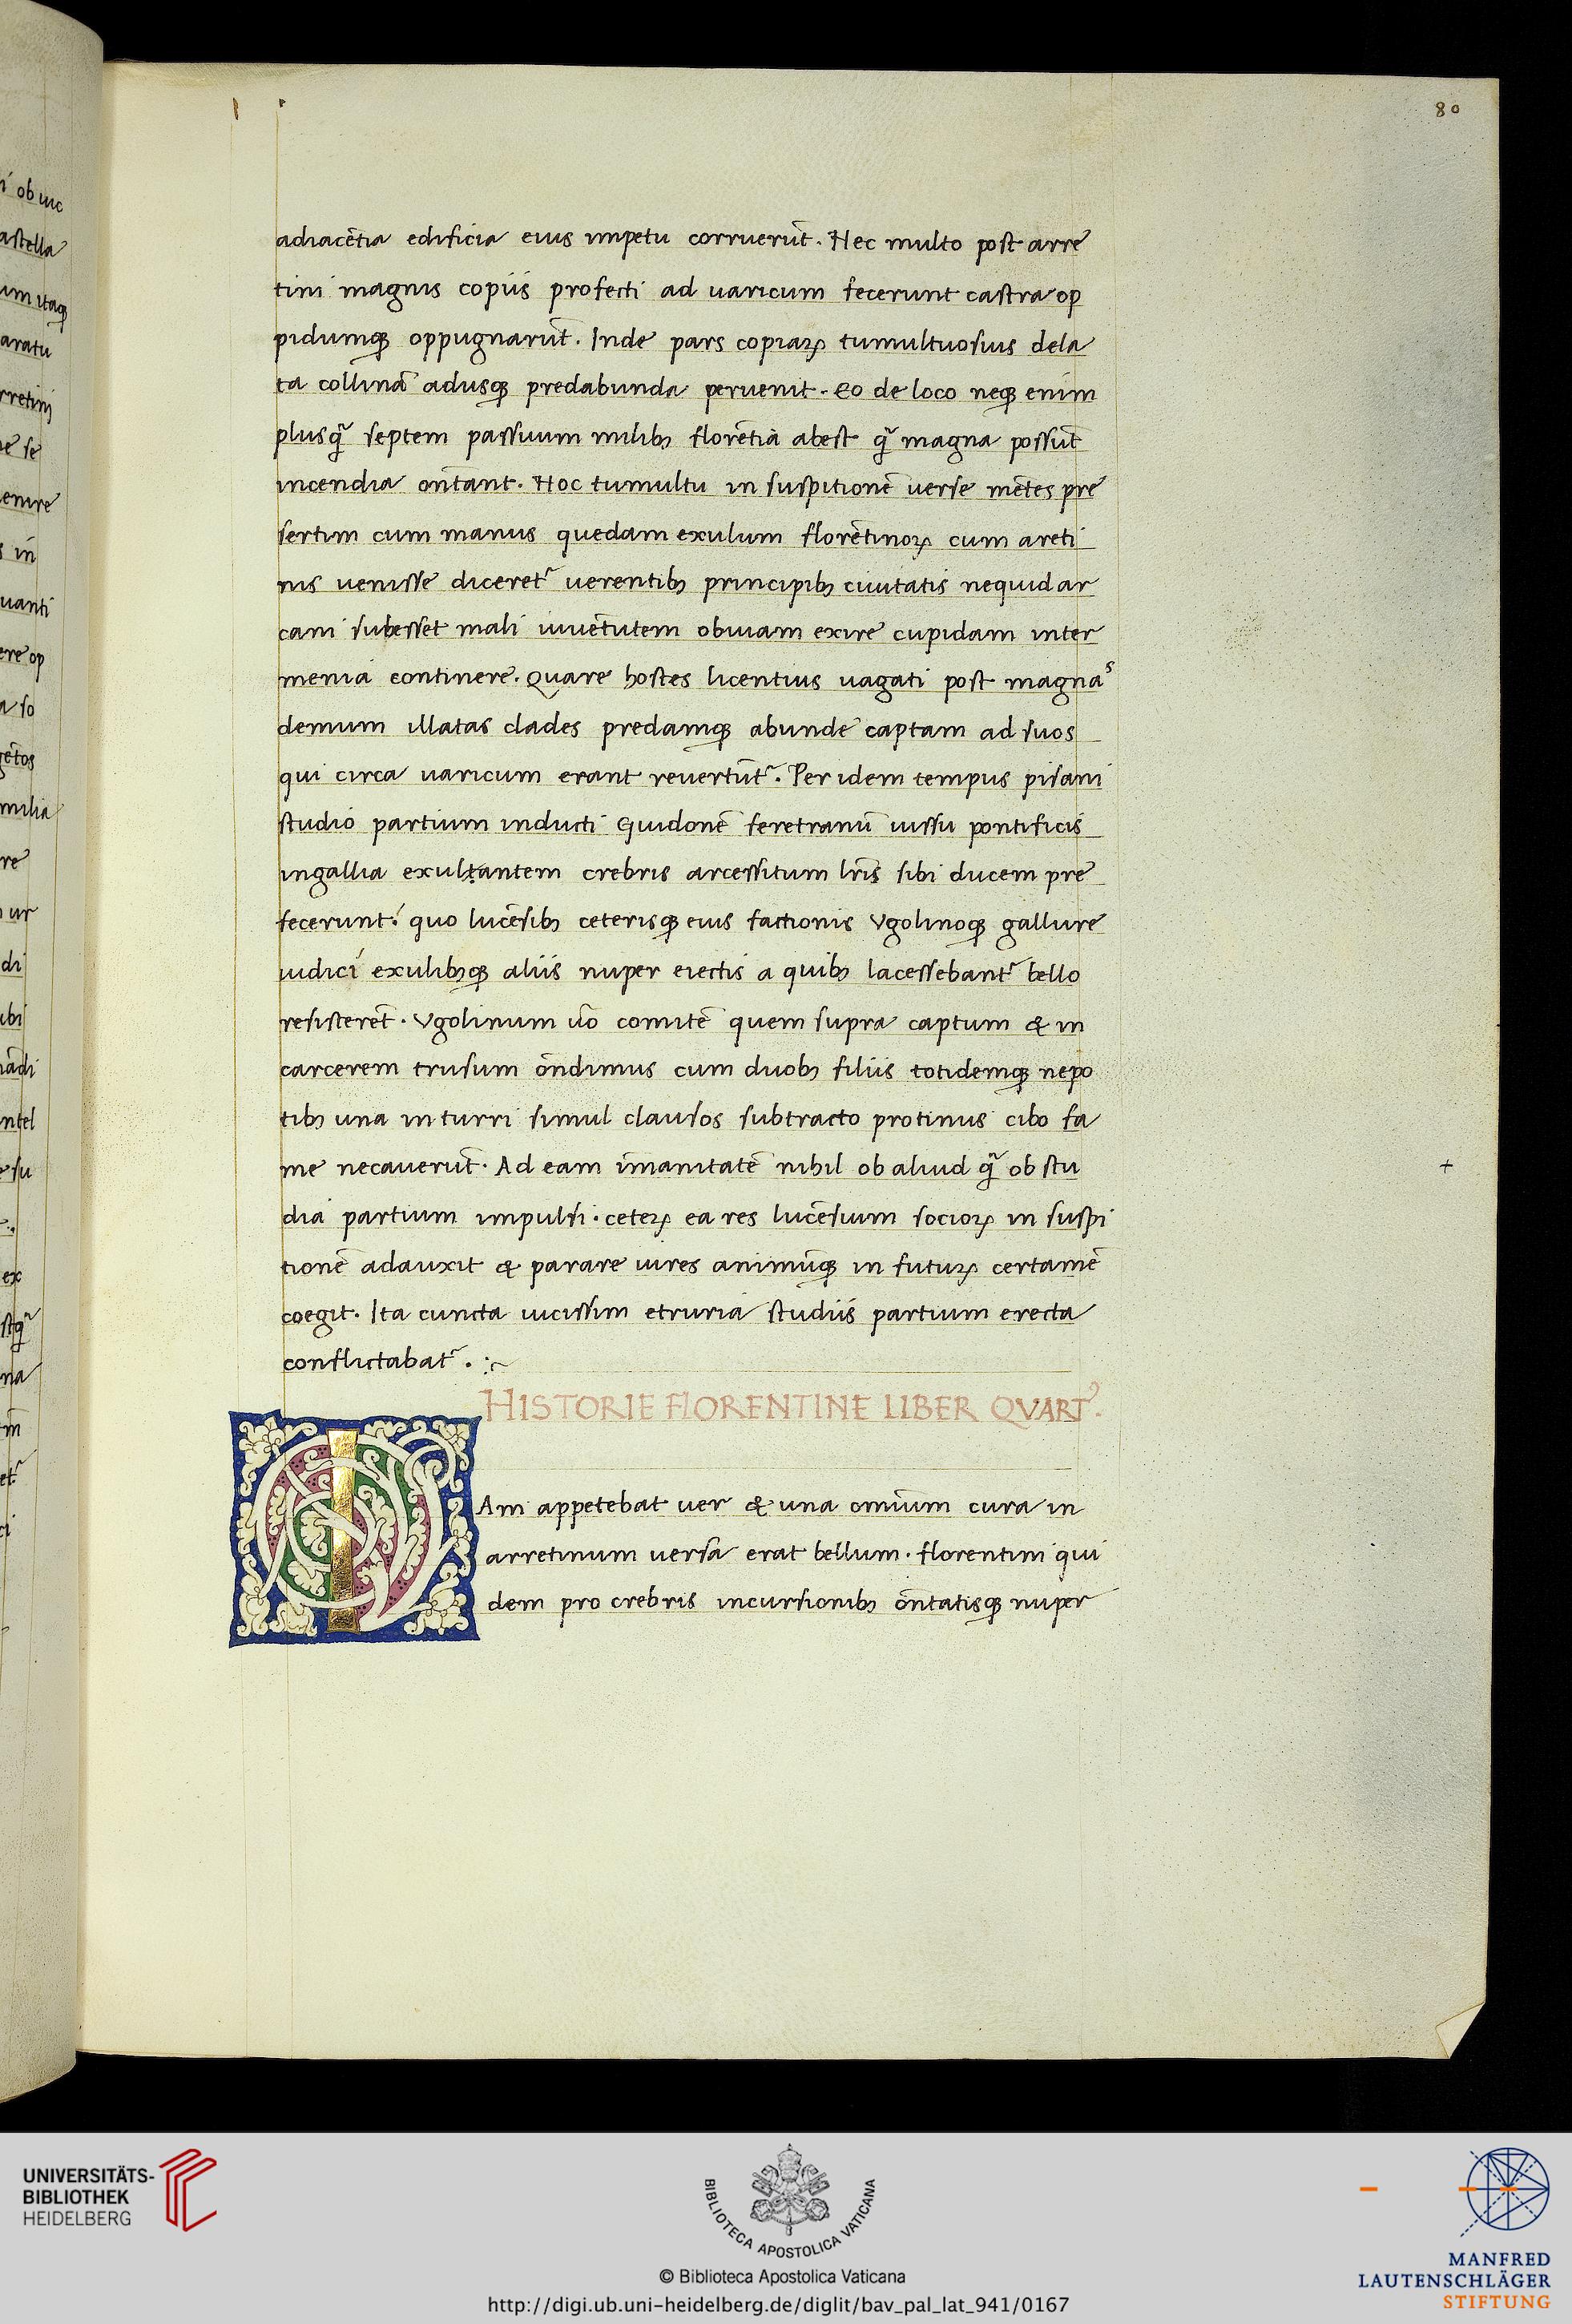 80
adiacẽtia edificia eius impetu corruerũt. Nec multo post arre
tini magnis copiis profecti ad uaricum fecerunt castra op
pidumqꝫ oppugnarũt. Inde pars copiaꝝ tumultuosius dela
ta collinã adusqꝫ predabunda peruenit. Eo de loco neqꝫ enim
plusq̃ septem passuum milibꝫ florẽtia abest q̃ magna possũt
incendia on̄tant. Hoc tumultu in suspitionẽ uerse mẽtes pre
sertim cum manus quedam exulum florẽtinoꝝ cum areti
nis uenisse diceret᷑ uerentibꝫ principibꝫ ciuitatis nequid ar
cani subesset mali iuuẽtutem obuiam exire cupidam inter
menia continere. Quare hostes licentius uagati post magnaˢ
demum illatas clades predamqꝫ abunde captam ad suos
qui circa uaricum erant reuertũt᷑. Per idem tempus pisani
studio partium inducti Guidonẽ feretranũ iussu pontificis
ingallia exultantem crebris arcessitum lr̃is sibi ducem pre
fecerunt: quo lucẽsibꝫ ceterisqꝫ eius factionis Vgolinoqꝫ gallure
iudici exulibꝫqꝫ aliis nuper eiectis a quibꝫ lacessebant᷑ bello
resisterẽt. Vgolinum ũo comitẽ quem supra captum & in
carcerem trusum on̄dimus cum duobꝫ filiis totidemqꝫ nepo
tibꝫ una in turri simul clausos subtracto protinus cibo fa
me necauerũt. Ad eam im̃anitatẽ nihil ob aliud q̃ ob stu
dia partium impulsi. ceteꝝ ea res lucẽsium socioꝝ in suspi
tionẽ adauxit & parare uires animũqꝫ in futuꝝ certamẽ
coegit. Ita cuncta uicissim etruria studiis partium erecta
conflictabat᷑. :~
HISTORIE FLORENTINE LIBER QVART᾿.
IAm appetebat uer & una om̃ium cura in
arretinum uersa erat bellum. florentini qui
dem pro crebris incursionibꝫ on̄tatisqꝫ nuper
UNIVERSITÄTS-
BIBLIOTHEK
HEIDELBERG
BIBLIOTECA APOSTOLICA VATICANA
© Biblioteca Apostolica Vaticana
http://digi.ub.uni-heidelberg.de/diglit/bav_pal_lat_941/0167
MANFRED
LAUTENSCHLÄGER
STIFTUNG